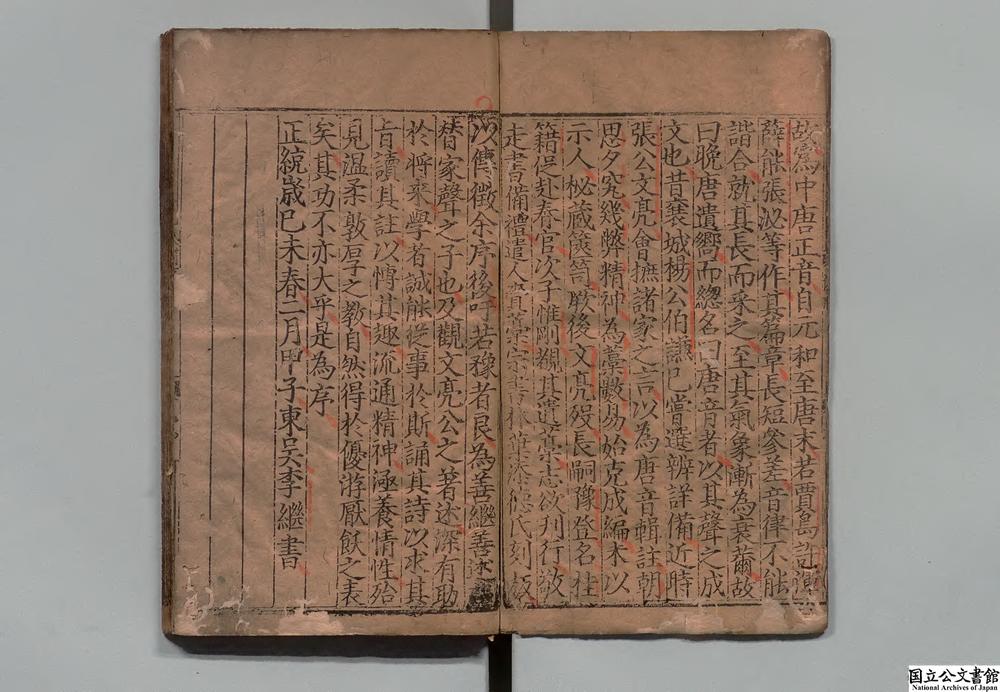 故為中唐正音自元和至唐末若賈島許渾
薛能張泌等作其篇章長短參差音律不能
諧合就其長而采之至其氣象漸為衰薾故
曰晚唐遺嚮而緫名曰唐音者以其聲之成
文也昔襄城楊公伯謙已嘗選辨詳備近時
張公文亮會摭諸家之言以為唐音輯註朝
思夕究幾弊精神為藁數易始克成編未以
示人秘藏箧笥厥後文亮歿長嗣豫登名桂
籍促赴春官次子惟剛覩其遺藁志欲刋行敬
走書備禮遣人賫藁 德氏刻
以傳徵余序後吁若豫者良為善繼善述
替家聲之子也及觀文亮公之著述深有助
於將來學者誠能從事於斯誦其詩以求其
旨讀其註以愽其趣流通精神涵養情性殆
見温柔敦厚之教自然得於優游厭飫之表
矣其功不亦大乎是為序
正統歲己未春二月甲子東吳李繼書
国立公文書館
National Archives of Japan